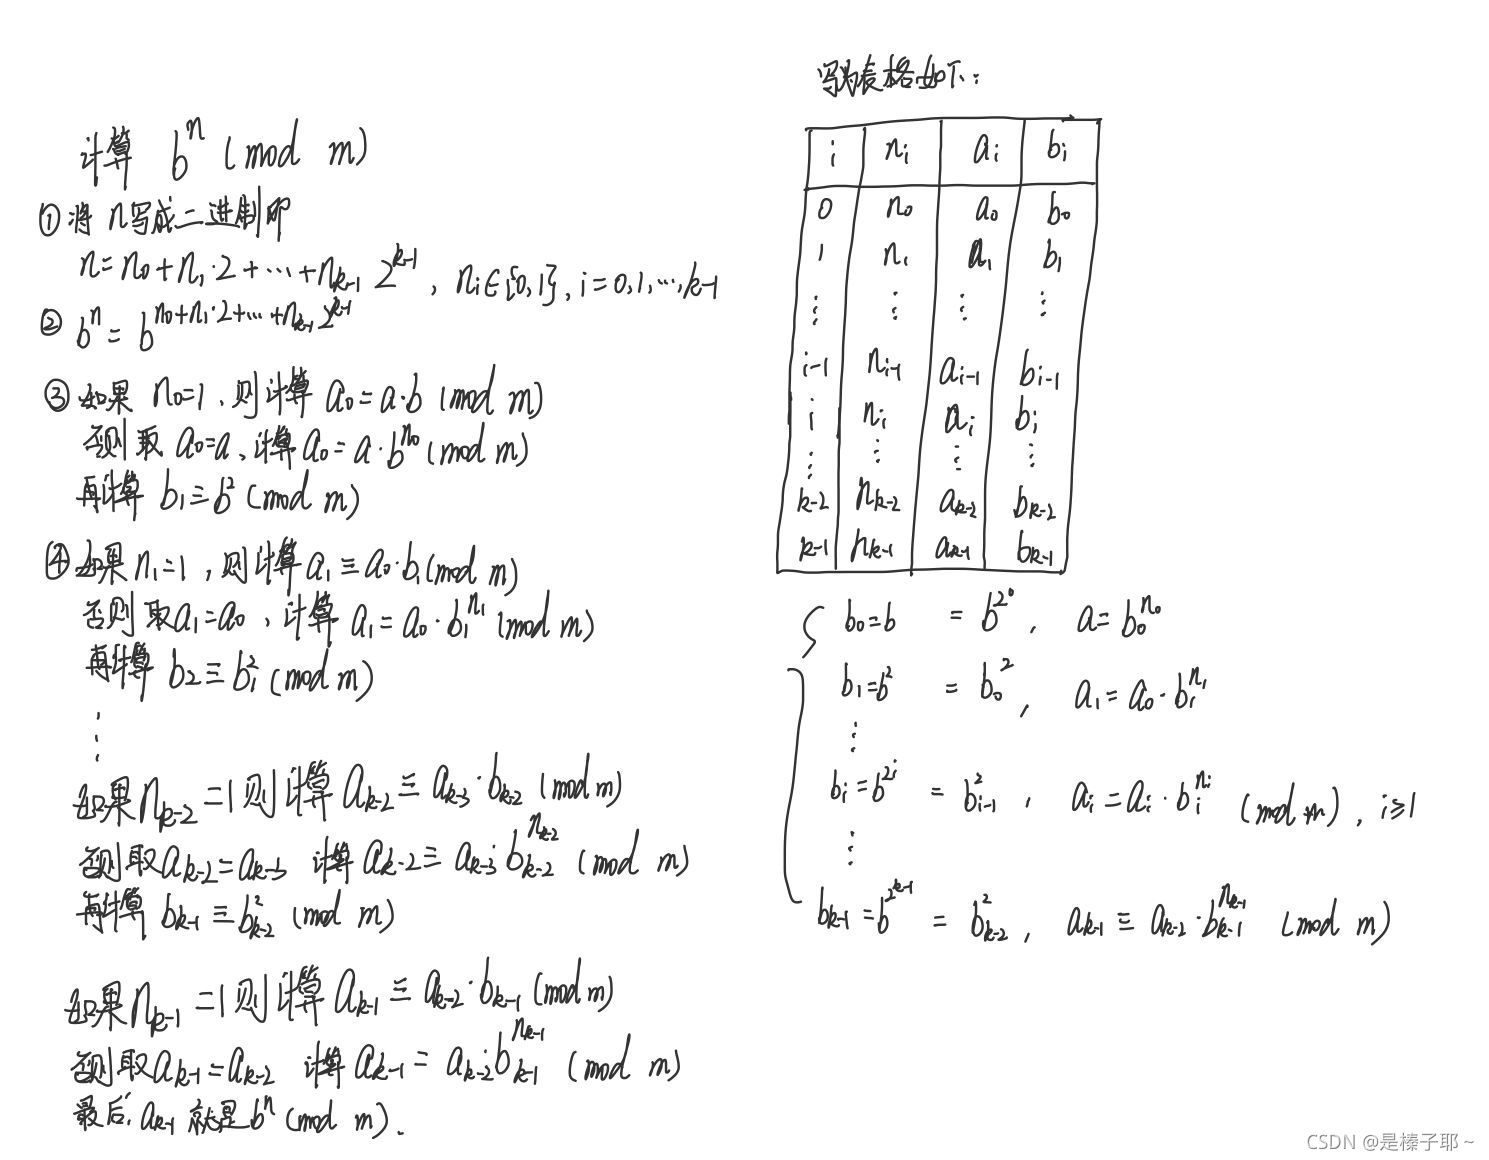 计算 b^n (mod m)
① 将 n写成二进制即
n=n₀+n₁·2+…+n_{k-1} 2^{k-1}, n_i∈{0,1}, i=0,1,…,k-1
② b^n = b^{n₀+n₁·2+…+n_{k-1}2^{k-1}}
③ 如果 n₀=1, 则计算 a₀=a·b (mod m)
否则取 a₀=a, 计算 a₀=a·b^{n₀} (mod m)
再计算 b₁≡b² (mod m)
④ 如果 n₁=1, 则计算 a₁≡a₀·b₁ (mod m)
否则取 a₁=a₀, 计算 a₁=a₀·b₁^{n₁} (mod m)
再计算 b₂≡b₁² (mod m)
⋮
如果 n_{k-2}=1 则计算 a_{k-2}≡a_{k-3}·b_{k-2} (mod m)
否则取 a_{k-2}=a_{k-3} 计算 a_{k-2}≡a_{k-3}·b_{k-2}^{n_{k-2}} (mod m)
再计算 b_{k-1}≡b_{k-2}² (mod m)
如果 n_{k-1}=1 则计算 a_{k-1}≡a_{k-2}·b_{k-1} (mod m)
否则取 a_{k-1}=a_{k-2} 计算 a_{k-1}=a_{k-2}·b_{k-1}^{n_{k-1}} (mod m)
最后, a_{k-1} 就是 b^n (mod m).
写为表格如下:
i n_i a_i b_i
0 n₀ a₀ b₀
1 n₁ a₁ b₁
⋮ ⋮ ⋮ ⋮
i-1 n_{i-1} a_{i-1} b_{i-1}
i n_i a_i b_i
⋮ ⋮ ⋮ ⋮
k-2 n_{k-2} a_{k-2} b_{k-2}
k-1 n_{k-1} a_{k-1} b_{k-1}
b₀=b = b^{2^0}, a=b₀^{n₀}
b₁=b² = b₀², a₁=a₀·b₁^{n₁}
⋮
b_i=b^{2^i} = b_{i-1}², a_i=a_i·b_i^{n_i} (mod m), i≥1
⋮
b_{k-1}=b^{2^{k-1}} = b_{k-2}², a_{k-1}≡a_{k-2}·b_{k-1}^{n_{k-1}} (mod m)
CSDN @是榛子耶~